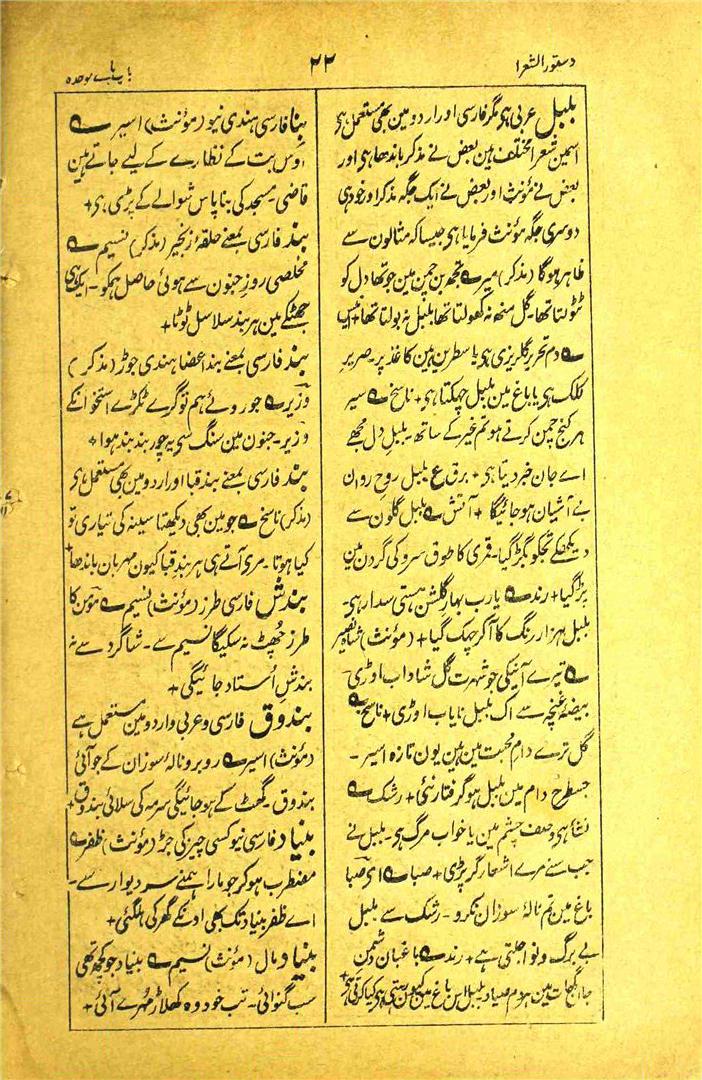 دستور الشعرا
۲۲
باب باے موحدہ
بلبل عربی ہی مگر فارسی اور اردو مین بھی مستعمل ہی
اسمین شعرا مختلف ہین بعض نے مذکر باندھا ہی اور
بعض نے مؤنث اور بعض نے ایک جگہ مذکر اور خود ہی
دوسری جگہ مؤنث فرمایا ہی جیسا کہ مثالون سے
ظاہر ہوگا (مذکر) میر ؎ تجھ بن چمن مین جو تھا دل کو
ٹٹولتا تھا۔ گل منھ نہ کھولتا تھا بلبل نہ بولتا تھا+ انیس
؎ دم تحریر گلریزی ہی یا سطرین ہین کاغذ پر۔ صریر
کلک ہی یا باغ مین بلبل چہکتا ہی+ ناسخ ؎ سیر
ہر کنج چمن کرتے ہو تم غیر کے ساتھ۔ بلبل دل مجھے
اے جان خبر دیتا ہی+ برق ع بلبل روح روان
بے آشیان ہو جائیگا+ آتش ؎ بلبل گلون سے
دیکھکے تجکو بگڑ گیا۔ قمری کا طوق سرو کی گردن مین
پڑ گیا+ رند ؎ یارب بہار گلشن ہستی سدا رہی۔
بلبل ہزار رنگ کا آکر چہک گیا+ (مؤنث) شاہ نصیر
؎ تیرے آنیکی جو شہرت گل شاداب اوڑی۔
بیضۂ غنچہ سے اک بلبل نایاب اوڑی+ ناسخ ؎
گل ترے دام محبت مین ہین یون تازہ اسیر۔
جسطرح دام مین بلبل ہو گرفتار نئی+ رشک ؎
نشا ہی وصف چشم مین یا خواب مرگ ہی۔ بلبل نے
جب سنے مرے اشعار گر پڑی+ صبا ؎ ای صبا
باغ مین تم نالۂ سوزان نکرو۔ رشک سے بلبل
بے برگ و نوا جلتی ہے+ رند ؎ باغبان دشمن
جا گھات مین ہو م صیاد۔ بلبل اس باغ مین کیون رہتی ہی کیا کرتی ہی+
بِنا فارسی ہندی نیو (مؤنث) اسیر ؎
اوس بت کے نظارے کے لیے جاتے ہین
قاضی۔ مسجد کی بنا پاس شوالے کے پڑی ہی+
بند فارسی بمعنے حلقۂ زنجیر (مذکر) نسیم ؎
مخلصی روز جنون سے ہوئی حاصل ہمکو۔ ایک ہی
جھٹکے مین ہر بند سلاسل ٹوٹا+
بند فارسی بمعنے بند اعضا ہندی جوڑ (مذکر)
وزیر ؎ جو روئے ہم تو گرے ٹکڑے استخوانکے
وزیر۔ جنون مین سنگ سے یہ چور بند بند ہوا+
بند فارسی بمعنے بند قبا اور اردو مین بھی مستعمل ہی
(مذکر) ناسخ ؎ جو مین بھی دیکھتا سینہ کی تیاری تو
کیا ہوتا۔ مری آتے ہی ہر بند قبا کیون مہربان باندھا+
بندش فارسی طرز (مؤنث) نسیم ؎ مومن کا
طرز چھٹ نہ سکیگا نسیم سے۔ شاگرد سے نہ
بندش اُستاد جائیگی+
بندوق فارسی و عربی و اردو مین مستعمل ہے
(مؤنث) اسیر ؎ روبرو نالۂ سوزان کے جو آئی
بندوق۔ گھٹ کے ہو جائیگی سرمہ کی سلائی بندوق+
بنیاد فارسی نیو کسی چیز کی جڑ (مؤنث) ظفر ؎
مضطرب ہوکر جو مارا ہمنے سر دیوار سے۔
اے ظفر بنیاد تک بھی اونکے گھر کی ہلگئی+
بنیاد مال (مؤنث) نسیم ؎ بنیاد جو کچھ تھی
سب گنوائی۔ تب خود وہ کھلاڑ مُہرے آئی+